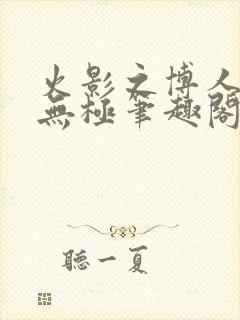 火影之博人
無極筆趣閣
聽一夏